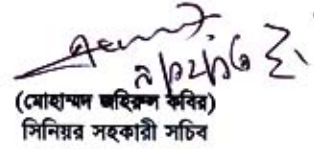 (মোহাম্মদ জহিরুল কবির)
সিনিয়র সহকারী সচিব